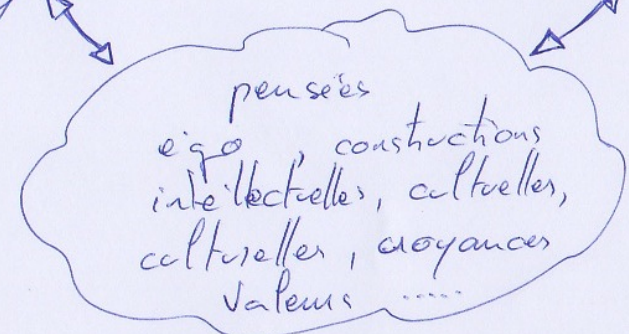 pensées
égo, constructions
intellectuelles, cultuelles,
culturelles, croyances
valeurs .....